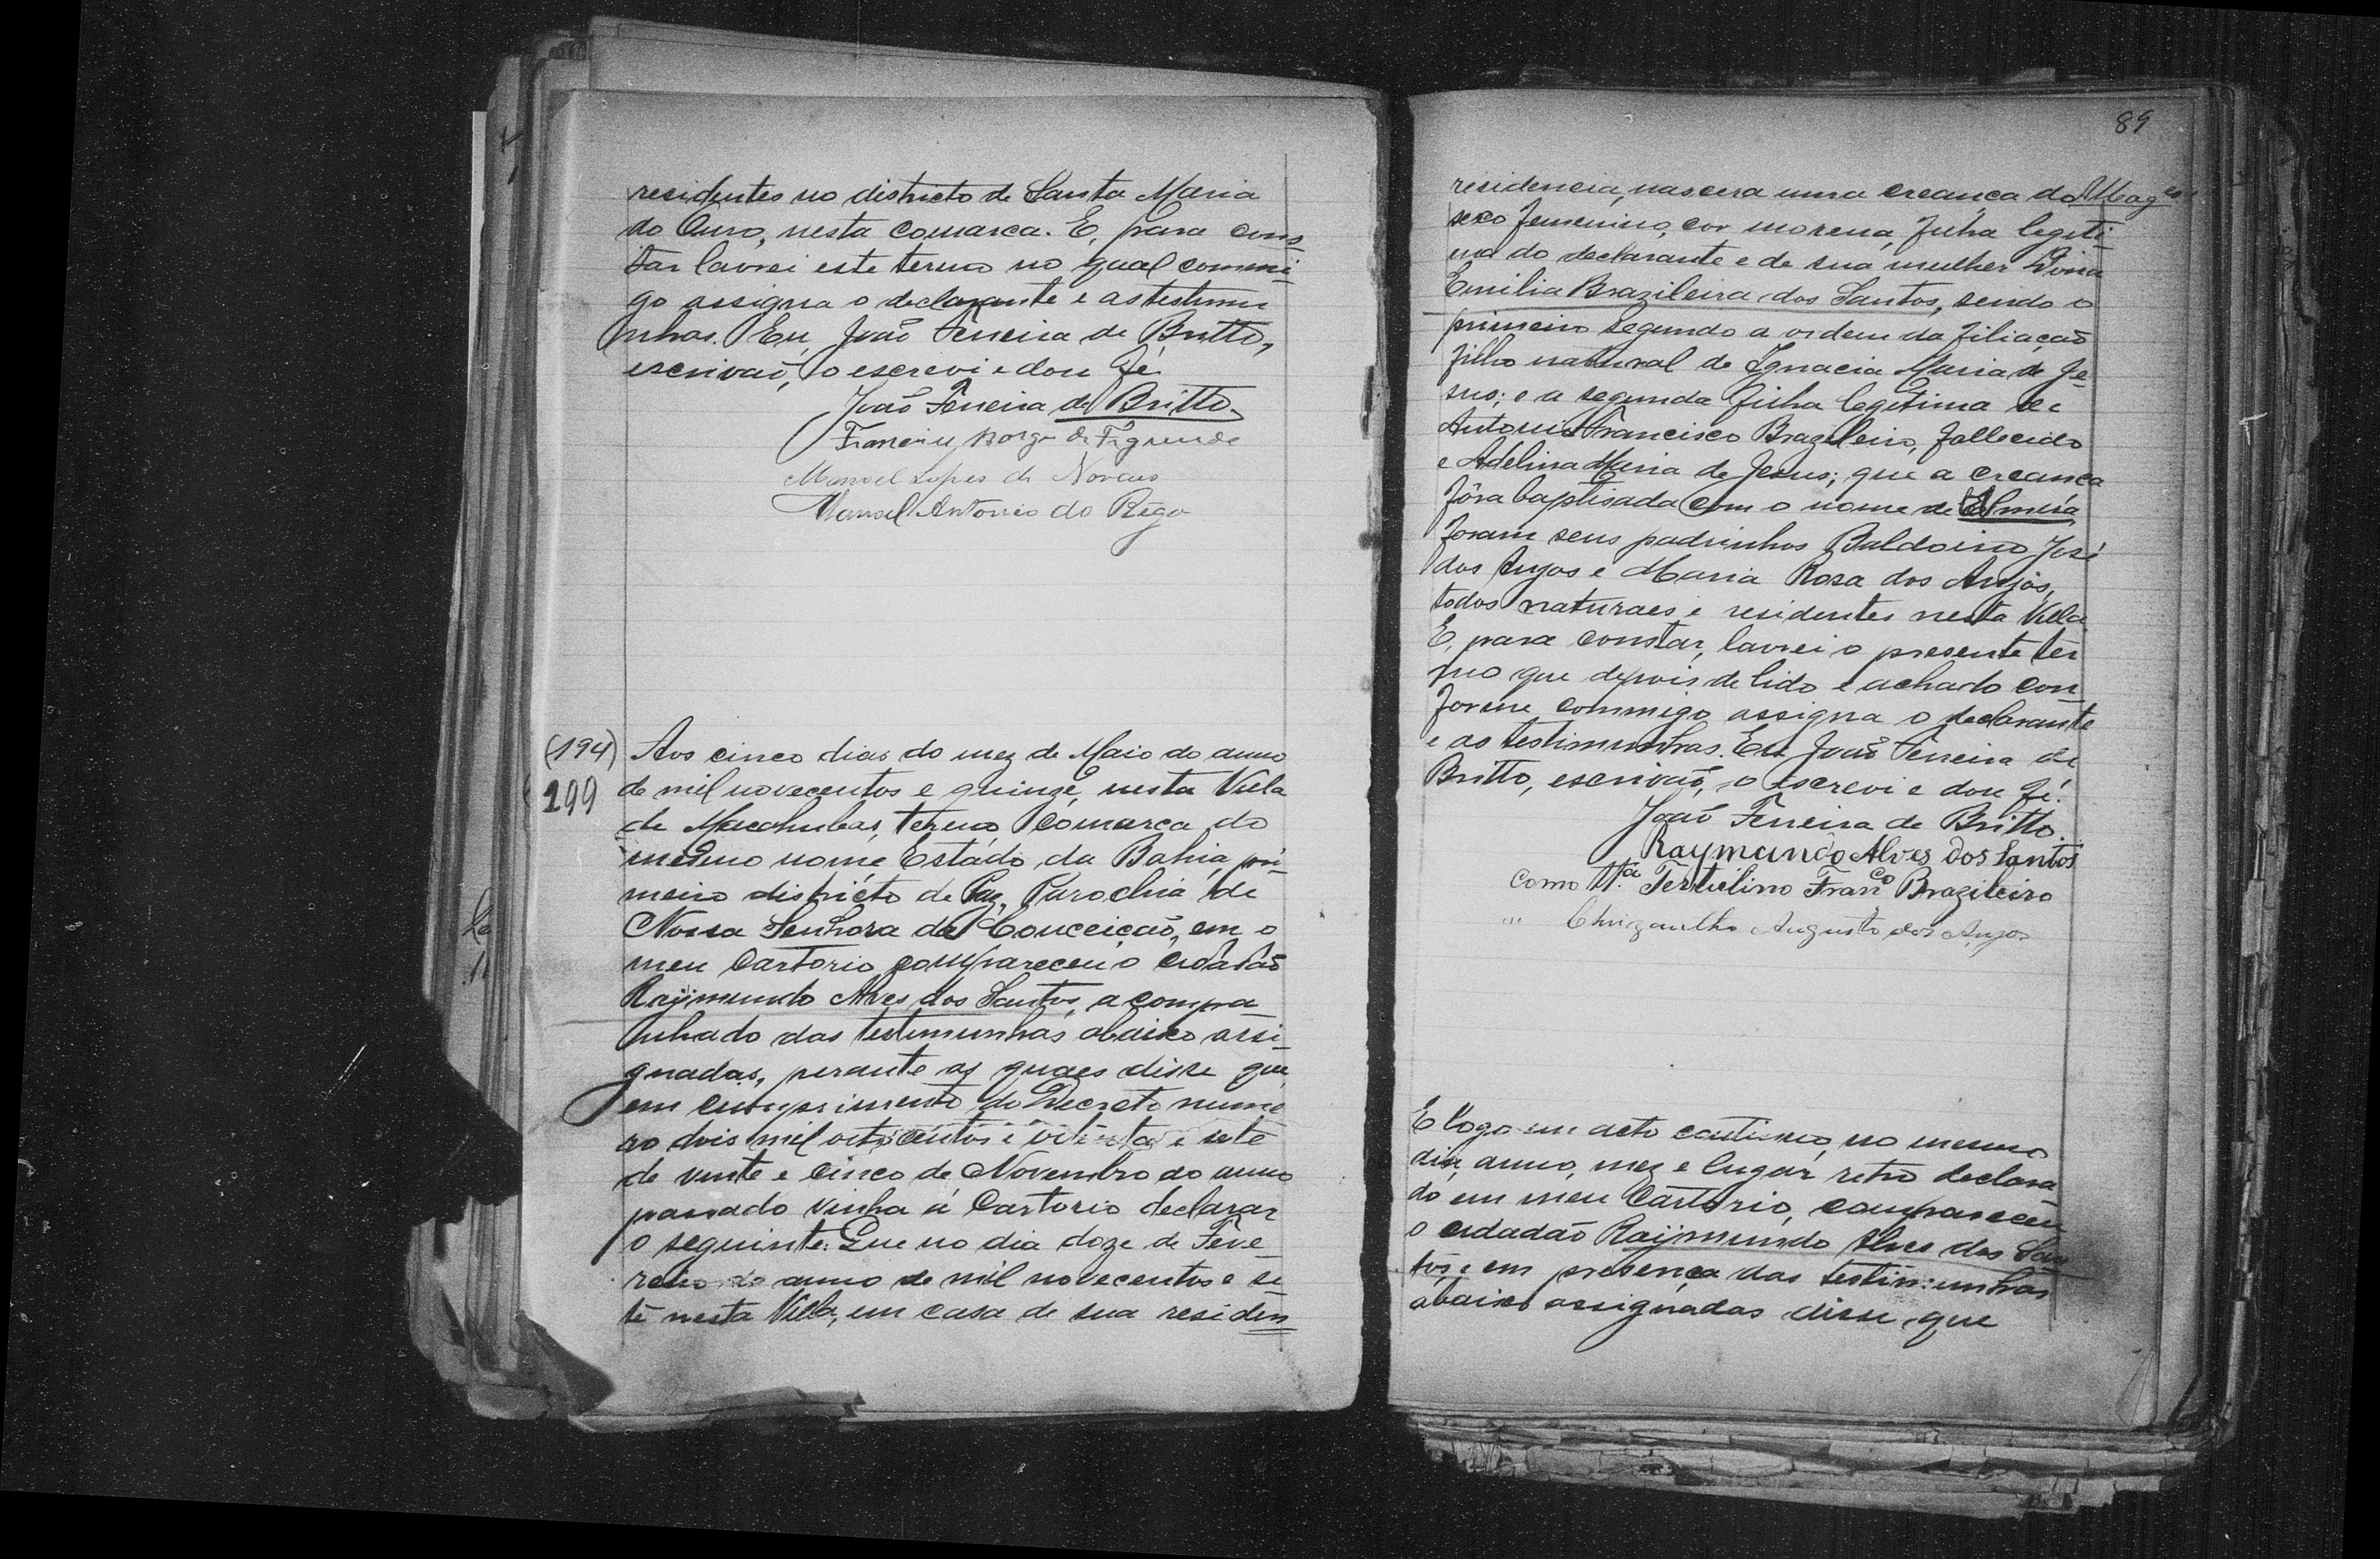 residentes no districto de Santa Maria
do Ouro, nesta comarca. E, para cons
tar lavrei este termo no qual commi
go assigna o declarante e as testimu
nhas. Eu, João Ferreira de Britto,
escrivaõ, o escrevi e dou fé.
João Ferreira de Britto.
Borge de
Manoel Lopes de Novaes
Manoel Antonio do Rêgo
(194)
199
Aos cinco dias do mez de Maio do anno
de mil novecentos e quinze, nesta Villa
de Macahubas, termo Comarca do
mesmo nome, Estado da Bahia, pri-
meiro districto de Paz, Parochia de
Nossa Senhora da Conceição, em o
meu Cartorio compareceu o cidadão
Raymundo Alves dos Santos, acompa-
nhado das testimunhas abaixo assi-
gnadas, perante as quaes disse que,
em cumprimento do Decreto nume
ro dois mil oitocentos e oitenta e sete
de vinte e cinco de Novembro do anno
passado vinha á Cartorio declarar
o seguinte: Que no dia doze de Feve-
reiro do anno de mil novecentos e se
te nesta Villa, em casa de sua residen
89
residencia, nascera uma creança do
sexo femenino, cor morena, filha legiti-
ma do declarante e de sua mulher Dona
Emilia Brazileira dos Santos, sendo o
primeiro segundo a ordem da filiação
filho natural de Ignacia Maria de Je-
sus; e a segunda filha legitima de
Antonio Francisco Brazileiro, fallecido
e Adelina Maria de Jesus; que a creança
fôra baptisada com o nome de
foram seus padrinhos Baldoino José
dos Anjos e Maria Rosa dos Anjos,
todos naturaes e residentes nesta Villa.
E, para constar, lavrei o presente ter
mo que depois de lido e achado con
forme commigo assigna o declarante
e as testimunhas. Eu João Ferreira de
Britto, escrivaõ, o escrevi e dou fé.
João Ferreira de Britto.
Raymundo Alves dos Santos
Como tt.ª Tertulino Fran.co Brazileiro
" Augusto dos Anjos
E logo em acto continuo, no mesmo
dia, anno, mez e lugar retro declara-
do em meu Cartorio, compareceu
o cidadão Raymundo Alves dos San
tos, e em presença das testimunhas
abaixo assignadas disse que